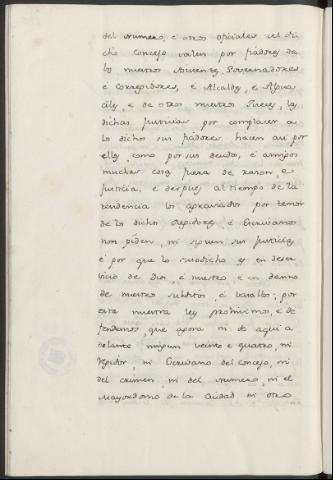 del numero, e otros oficiales del di
cho concejo salen por fiadores de
los nuestros Asistentes, Governadores
é Corregidores, é Alcaldes, é Algua
ciles, e de otros nuestros Jueces, las
dichas Justicias por complacer a
los dichos sus fiadores hacen asi por
ellos, como por sus deudos, é amigos
muchas cosas fuera de razon, e
Justicia, e despues al tiempo de la
residencia los agraviados por temor
de los dichos Regidores é Escrivanos
non piden, ni siguen sus Justicias
é por que lo susodicho es en deser
vicio de Dios, é nuestro é en danno
de nuestros subditos é vasallos; por
esta nuestra ley prohivimos, é de
fendemos, que agora ni de aqui a
delante ningun veinte e quatro, ni
Regidor, ni Escrivano del concejo, ni
del crimen, ni del numero, ni el
Mayordomo de la Ciudad ni otro